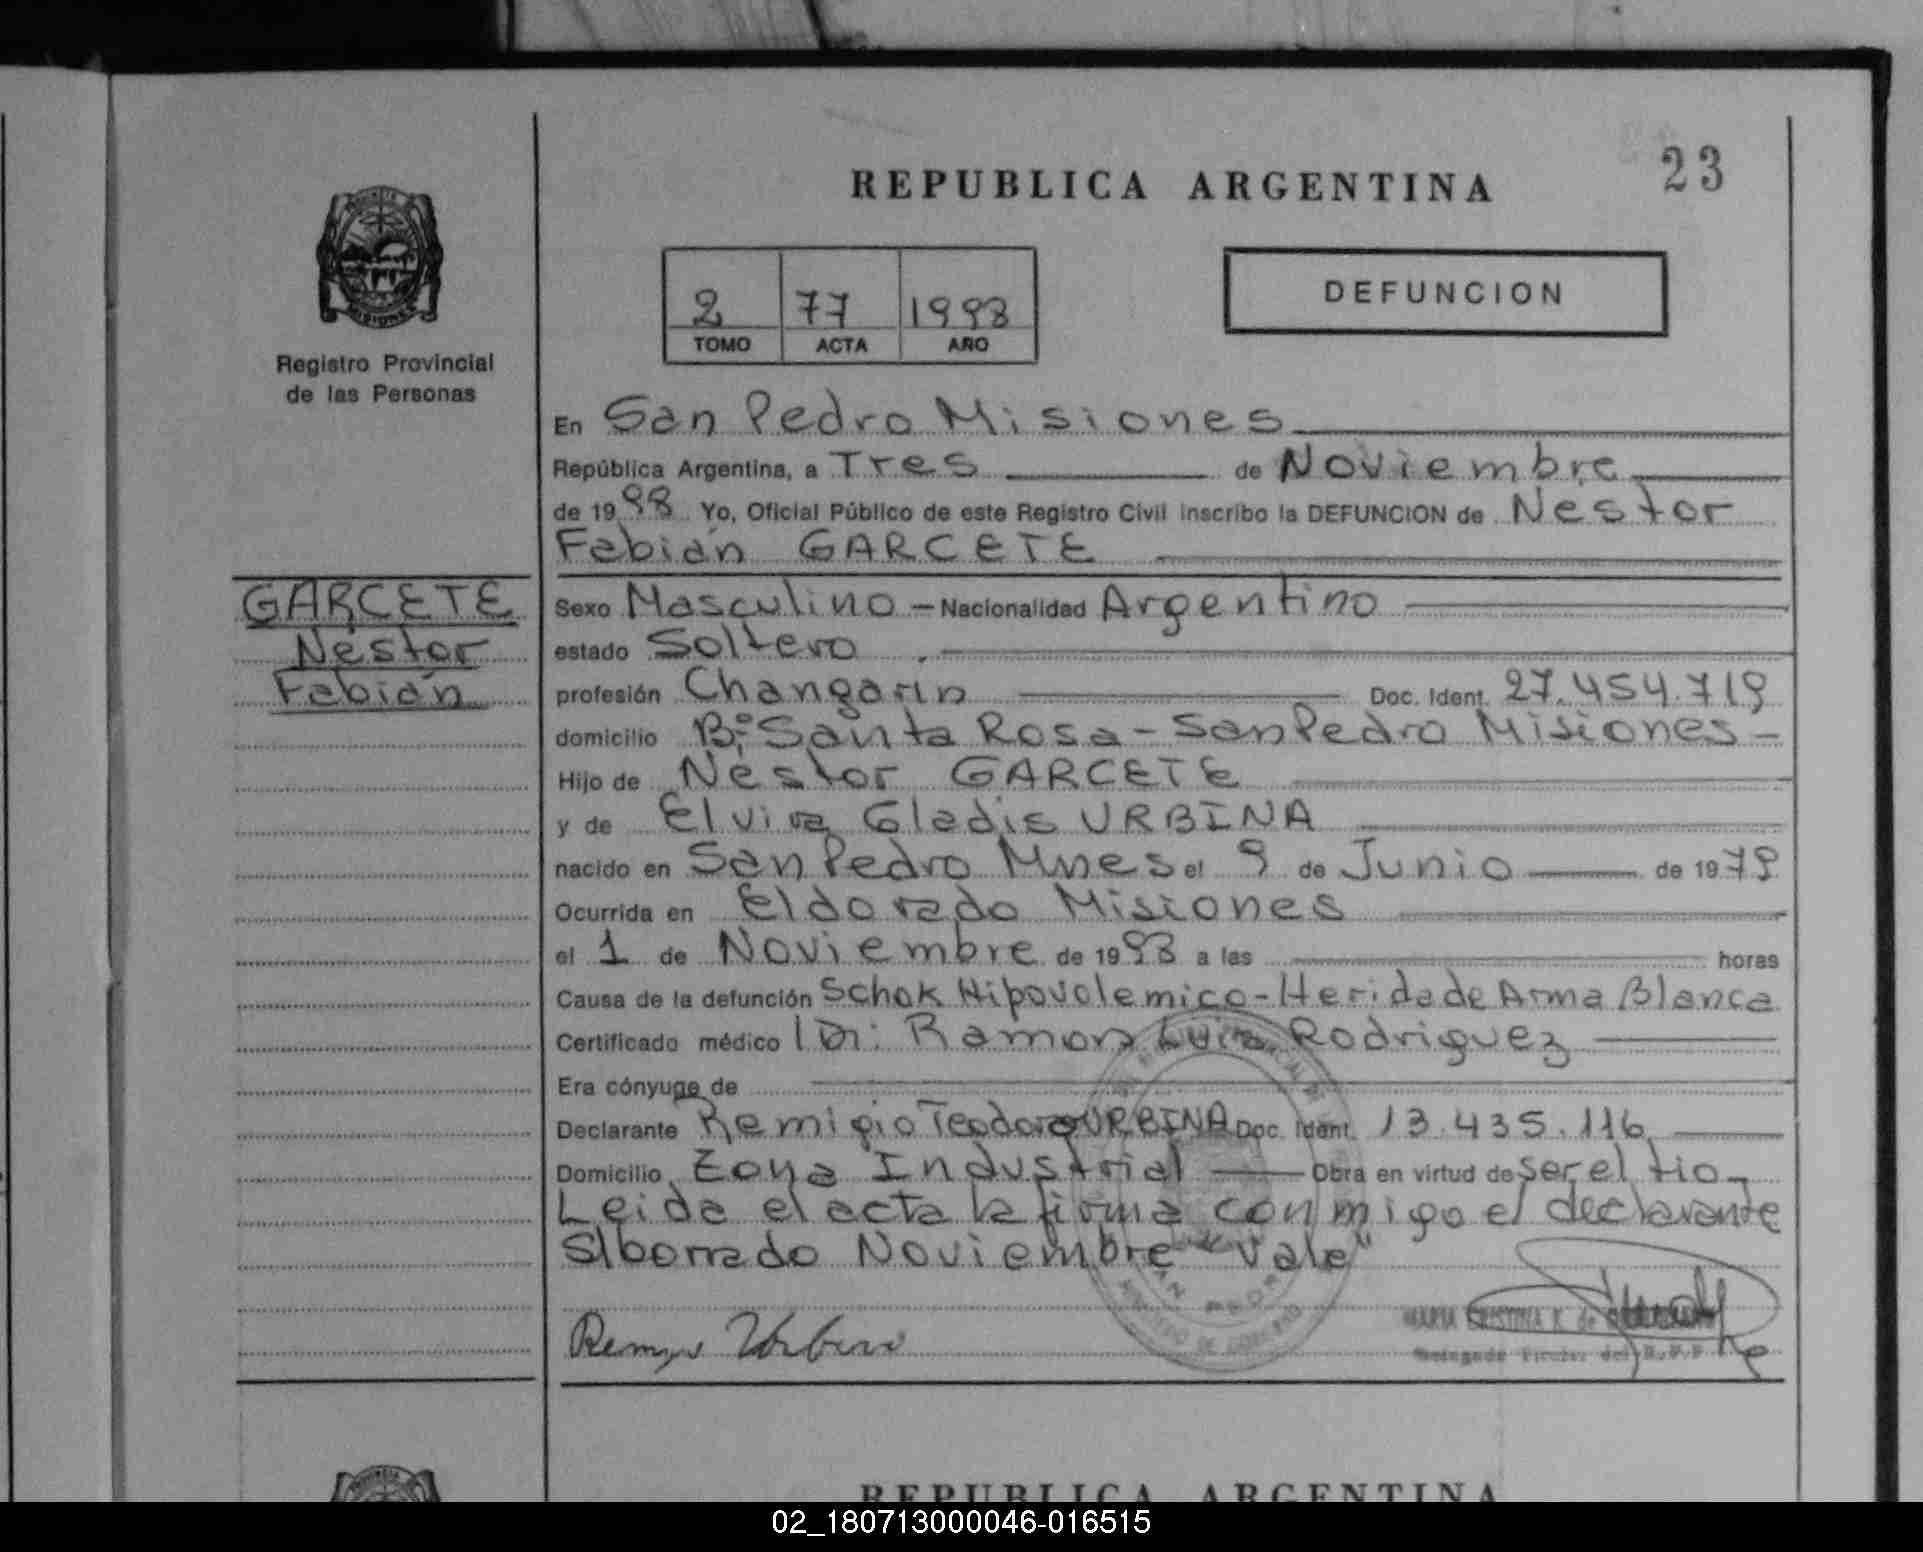 23
REPUBLICA ARGENTINA
MISIONES
Registro Provincial
de las Personas
2 77 1998
TOMO ACTA AÑO
DEFUNCION
En San Pedro Misiones
República Argentina, a Tres de Noviembre
de 1998 Yo, Oficial Público de este Registro Civil inscribo la DEFUNCION de Nestor
Fabián GARCETE
GARCETE
Néstor
Fabián
Sexo Masculino - Nacionalidad Argentino
estado Soltero
profesión Changarin Doc. Ident. 27.454.719
domicilio Bº Santa Rosa - San Pedro Misiones -
Hijo de Néstor GARCETE
y de Elvira Gladis URBINA
nacido en San Pedro Mnes el 9 de Junio de 1979
Ocurrida en Eldorado Misiones
el 1 de Noviembre de 1998 a las horas
Causa de la defunción Schok Hipovolemico - Herida de Arma Blanca
Certificado médico Dr: Ramon Luis Rodriguez
Era cónyuge de
Declarante Remigio Teodoro URBINA Doc. Ident. 13.435.116
Domicilio Zona Industrial Obra en virtud de ser el tio -
Leida el acta la firma conmigo el declarante
S/borrado Noviembre "Vale"
MINISTERIO DE GOBIERNO
MARIA CRISTINA K. de
Delegada Titular del R.P.P.
REPUBLICA ARGENTINA
02_180713000046-016515